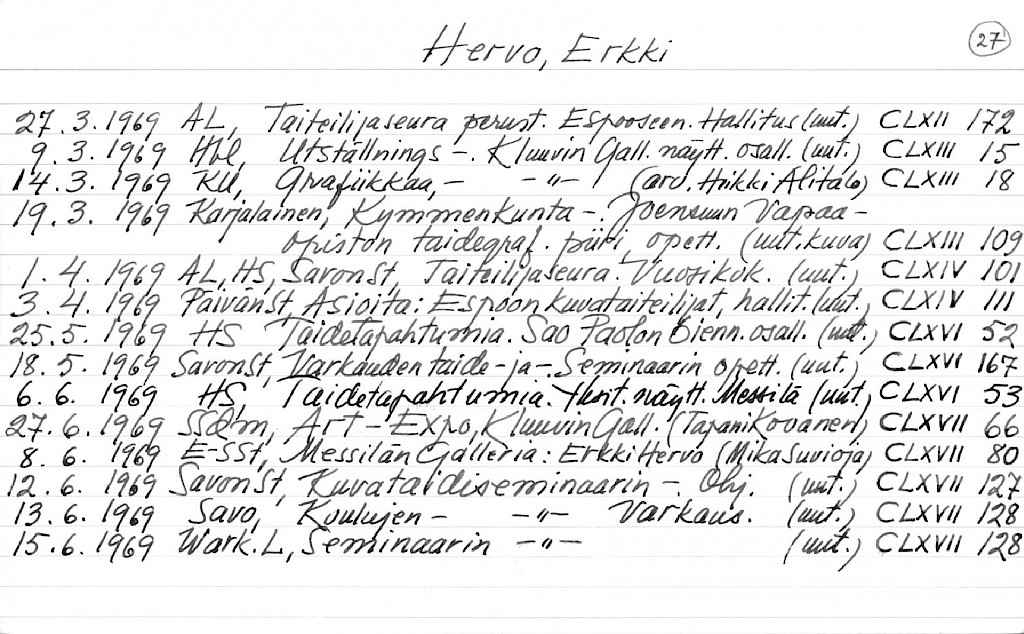 Hervo, Erkki
27
27.3.1969 AL, Taiteilijaseura perust. Espooseen. Hallitus (uut.) CLXII 172
9.3.1969 Hbl, Utställnings -. Kluuvin Gall. näytt. osall. (uut.) CLXIII 15
14.3.1969 KU, Grafiikkaa, - -"- (arv. Heikki Alitalo) CLXIII 18
19.3.1969 Karjalainen, Kymmenkunta -. Joensuun Vapaa-
opiston taidegraf. piiri, opett. (uut. kuva) CLXIII 109
1.4.1969 AL, HS, SavonSt, Taiteilijaseura. Vuosikok. (uut.) CLXIV 101
3.4.1969 PäivänSt, Asioita: Espoon kuvataiteilijat, hallit. (uut.) CLXIV 111
25.5.1969 HS Taidetapahtumia. Sao Paolon Bienn. osall. (uut.) CLXVI 52
18.5.1969 SavonSt, Varkauden taide- ja -. Seminaarin opett. (uut.) CLXVI 167
6.6.1969 HS, Taidetapahtumia. Yksit. näytt. Messilä (uut.) CLXVI 53
27.6.1969 Art-Expo, Kluuvin Gall. (Tapani Kovanen) CLXVII 66
8.6.1969 E-SSt, Messilän Galleria: Erkki Hervo (Mika Suvioja) CLXVII 80
12.6.1969 SavonSt, Kuvataidiseminaarin -. Ohj. (uut.) CLXVII 127
13.6.1969 Savo, Koulujen - -"- Varkaus. (uut.) CLXVII 128
15.6.1969 Wark. L, Seminaarin -"- (uut.) CLXVII 128